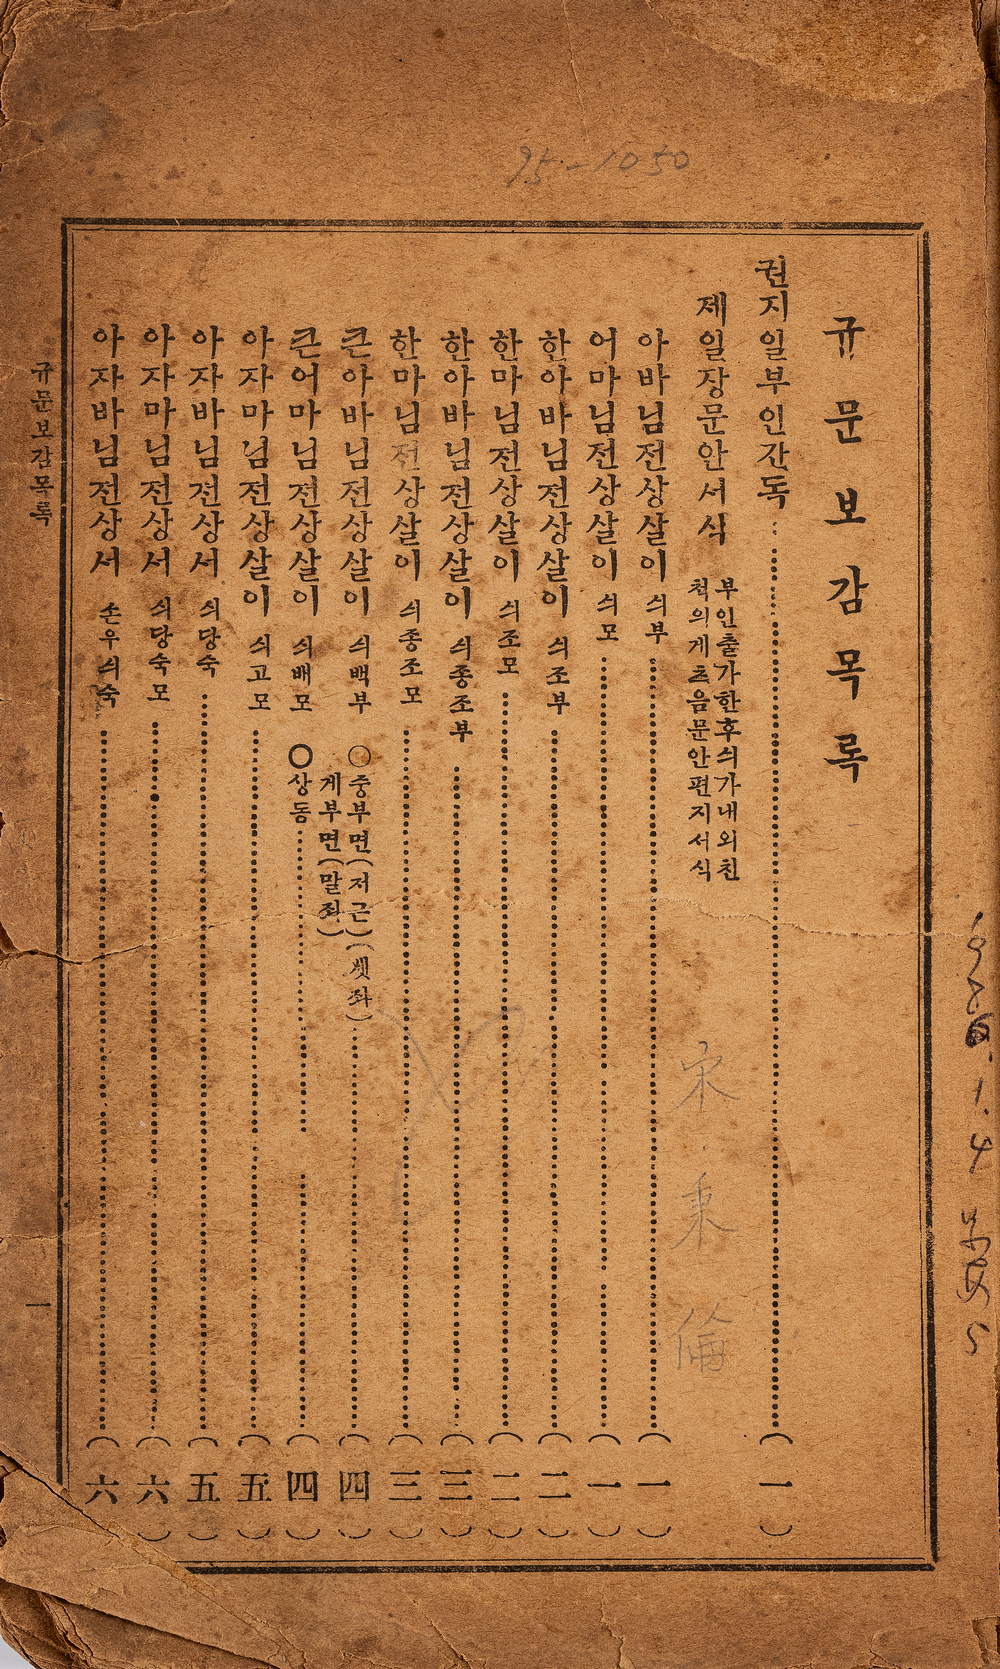 95-1050
규문보감목록
권지일부인간독 (一)
제일장문안서식 부인출가한후싀가내외친
척의게츠음문안편지서식
아바님전상살이 싀부 (一)
어마님전상살이 싀모 (一)
한아바님전상살이 싀조부 (二)
한마님전상살이 싀조모 (二)
한아바님전상살이 싀종조부 (三)
한마님전상살이 싀종조모 (三)
큰아바님전상살이 싀백부 ○중부면(저근)(셋좌)
게부면(말좌) (四)
큰어마님전상살이 싀배모 ○상동 (四)
아자마님전상살이 싀고모 (五)
아자바님전상서 싀당숙 (五)
아자마님전상서 싀당숙모 (六)
아자바님전상서 손우싀숙 (六)
규문보감목록
一
宋秉倫
1.4